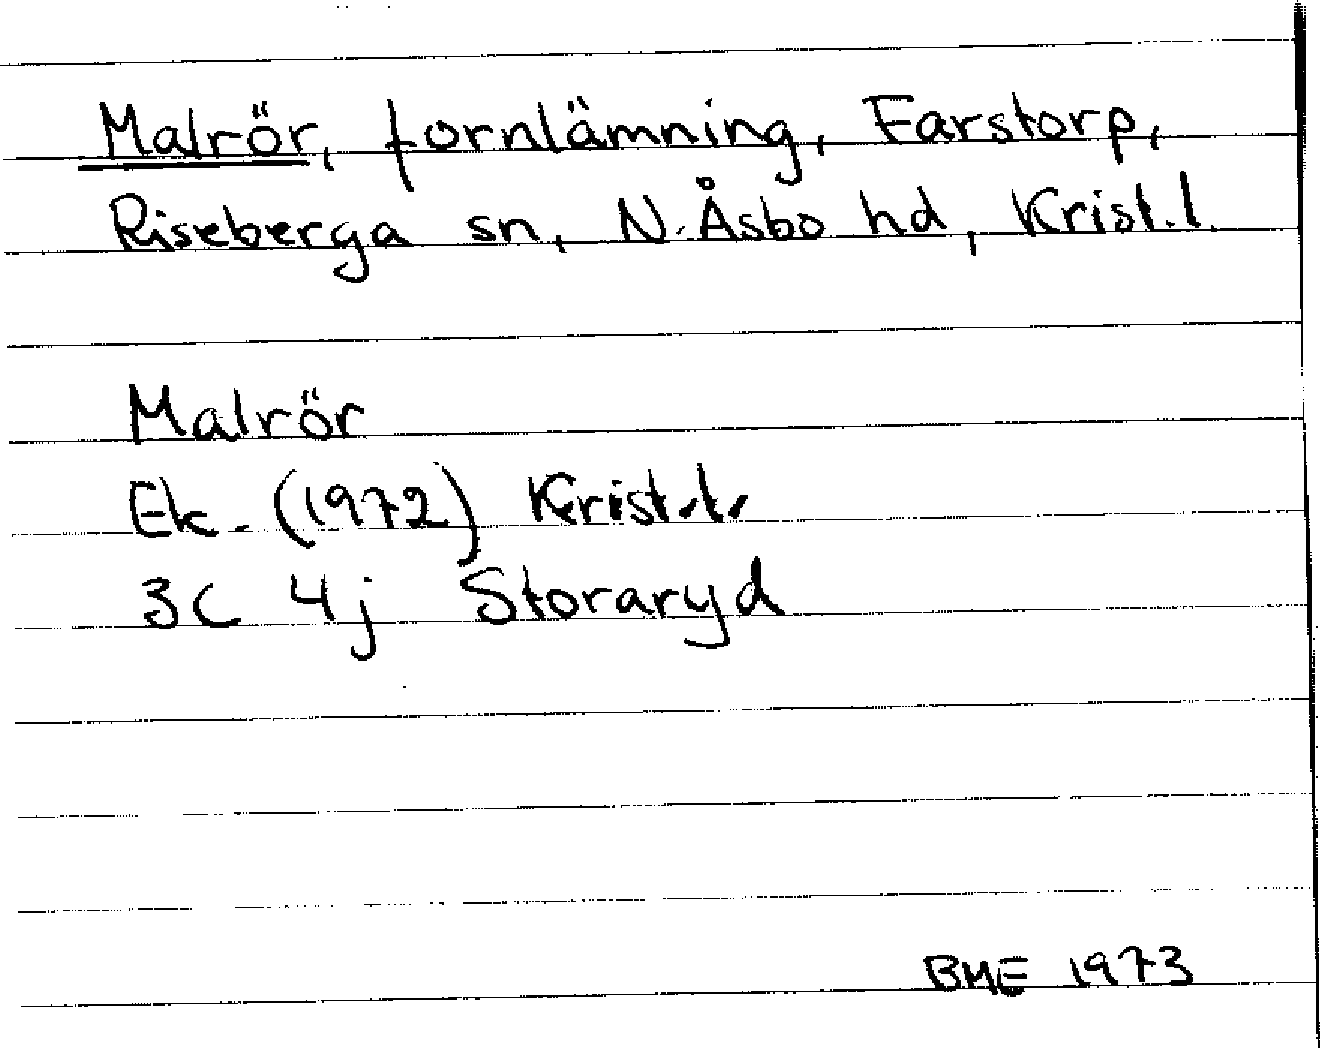 Malrör, fornlämning, Farstorp,
Riseberga sn, N. Åsbo hd, Krist. l.
Malrör
Ek. (1972) Krist. l.
3C 4j Storaryd
BME 1973